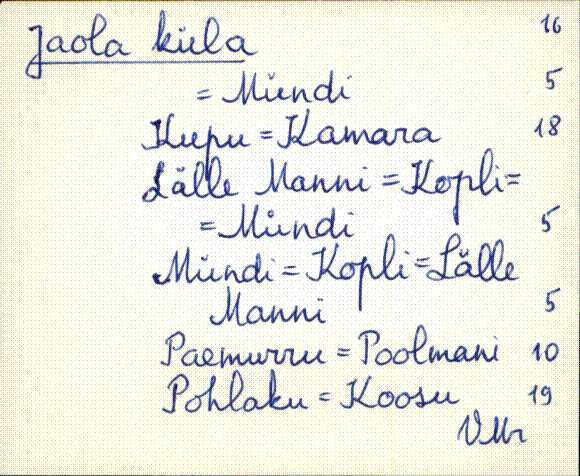 Jaola küla 16
= Mündi 5
Kupu = Kamara 18
Lälle Manni = Kopli =
= Mündi 5
Mündi = Kopli = Lälle
Manni 5
Paemurru = Poolmani 10
Pohlaku = Koosu 19